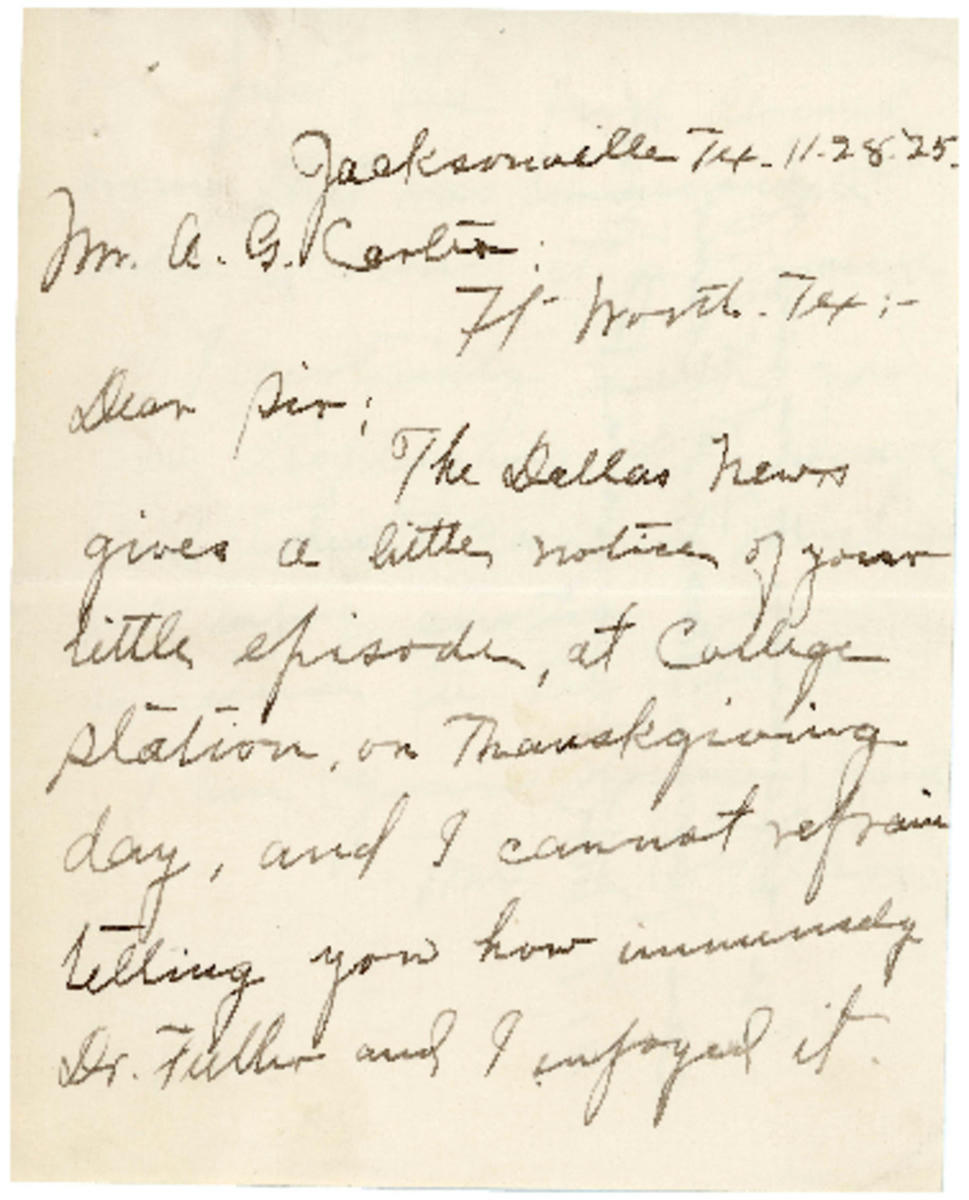 Jacksonville Tex. 11-28-'25.
Mr. A. G. Carter:
Ft- Worth. Tex:-
Dear Sir;
The Dallas News
gives a little notice of your
little episode, at College
Station, on Thanskgiving
day, and I cannot refrain
telling you how immensely
Dr. Fuller and I enjoyed it.